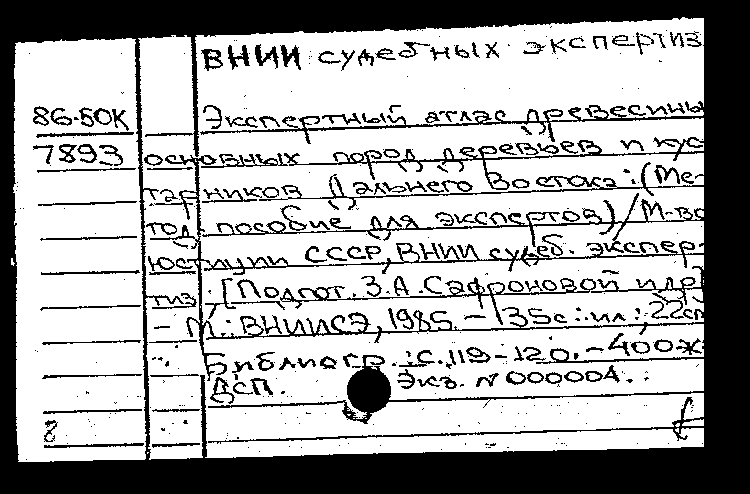 ВНИИ судебных экспертиз
86-50К Экспертный атлас древесины
7893 основных пород деревьев и кус-
тарников Дальнего Востока: (Ме-
тод. пособие для экспертов)/М-во
юстиции СССР, ВНИИ судеб. экспер-
тиз; [Подгот. З.А. Сафроновой и др]
- М.: ВНИИСЭ, 1985. - 135с.: ил.; 22см
Библиогр.: с. 119-120. - 400 ж
ДСП. Экз. N 000004.
8